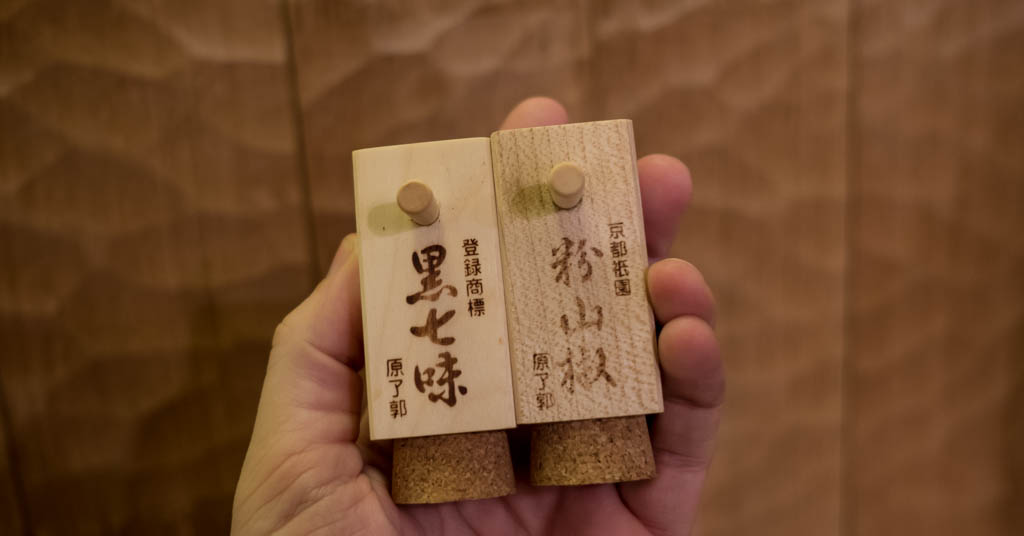 登録商標
黒七味
原了郭
京都祇園
粉山椒
原了郭